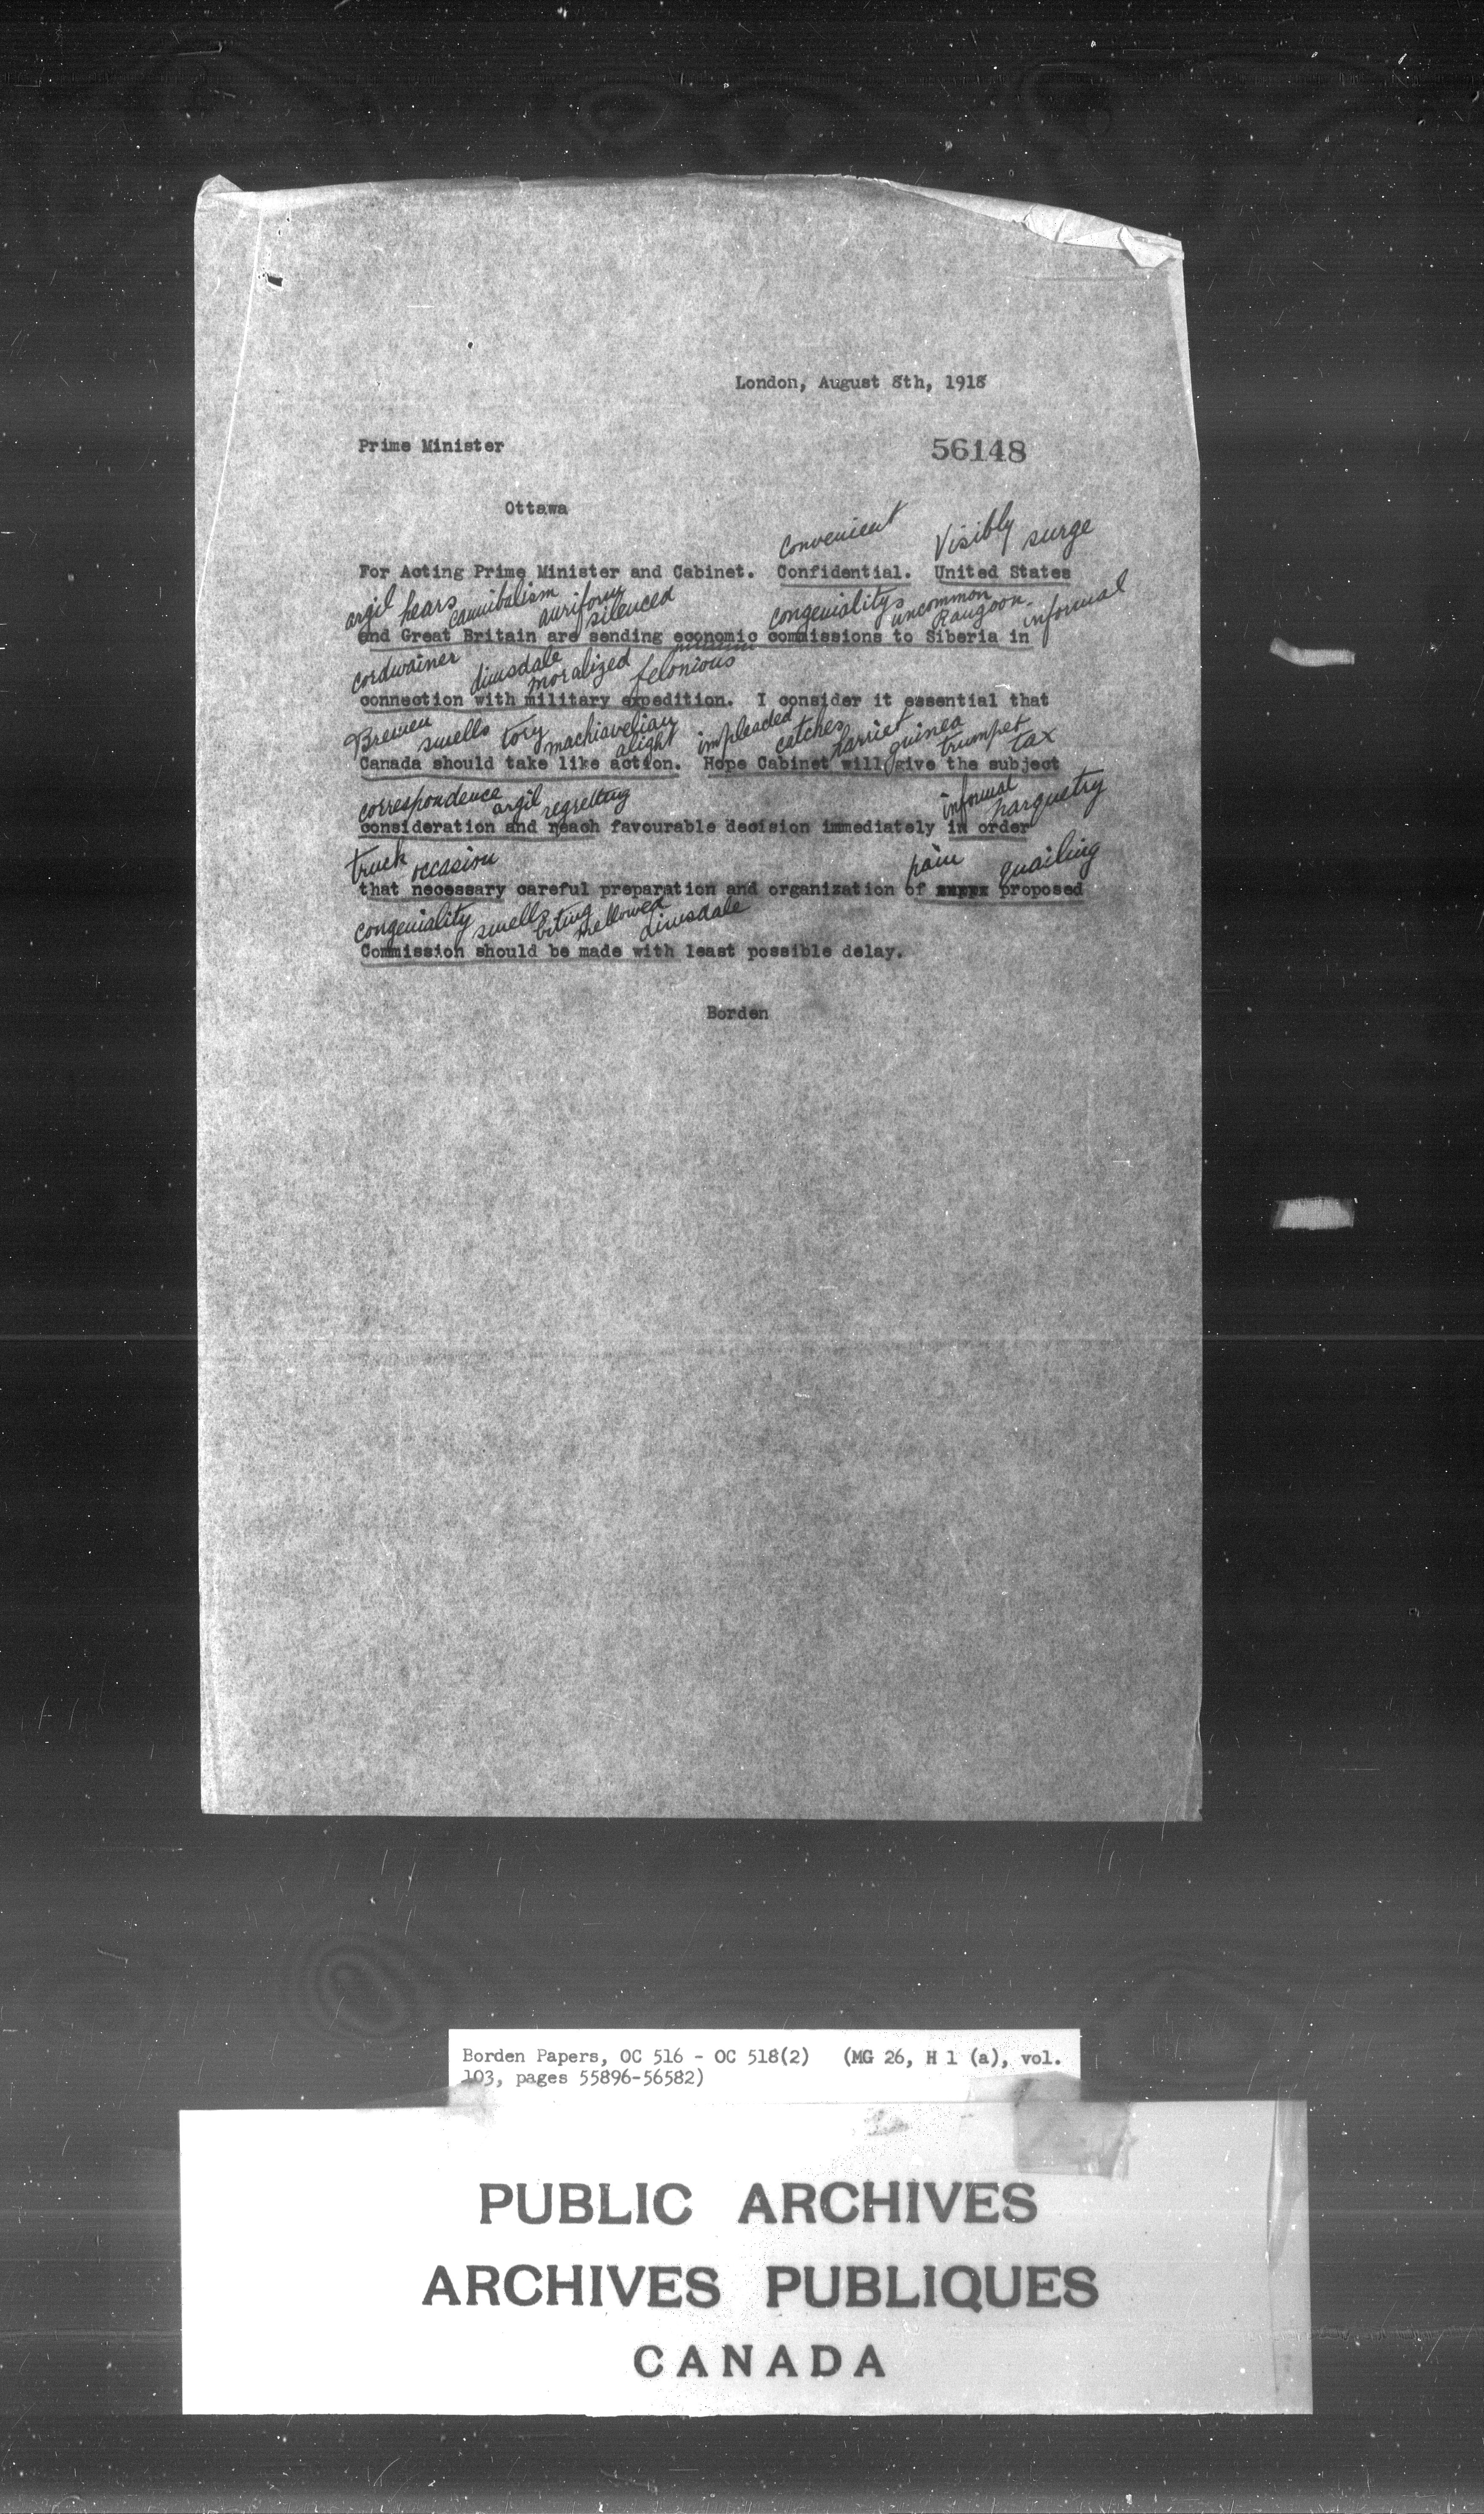 London, August 8th, 1918
Prime Minister
56148
Ottawa
convenient Visibly surge
For Acting Prime Minister and Cabinet. Confidential. United States
argil hears cannibalism auriform silenced congenialitys uncommon Rangoon informal
and Great Britain are sending economic commissions to Siberia in
cordwainer dinsdale moralized felonious
connection with military expedition. I consider it essential that
Bremen smells tory machiavelian alight impleaded catches harriet guinea trumpet tax
Canada should take like action. Hope Cabinet will give the subject
correspondence argil regretting informal parquetry
consideration and reach favourable decision immediately in order
truck occasion pain quailing
that necessary careful preparation and organization of proposed
congeniality smells biting mellowed dinsdale
Commission should be made with least possible delay.
Borden
Borden Papers, OC 516 - OC 518(2) (MG 26, H 1 (a), vol.
103, pages 55896-56582)
PUBLIC ARCHIVES
ARCHIVES PUBLIQUES
CANADA